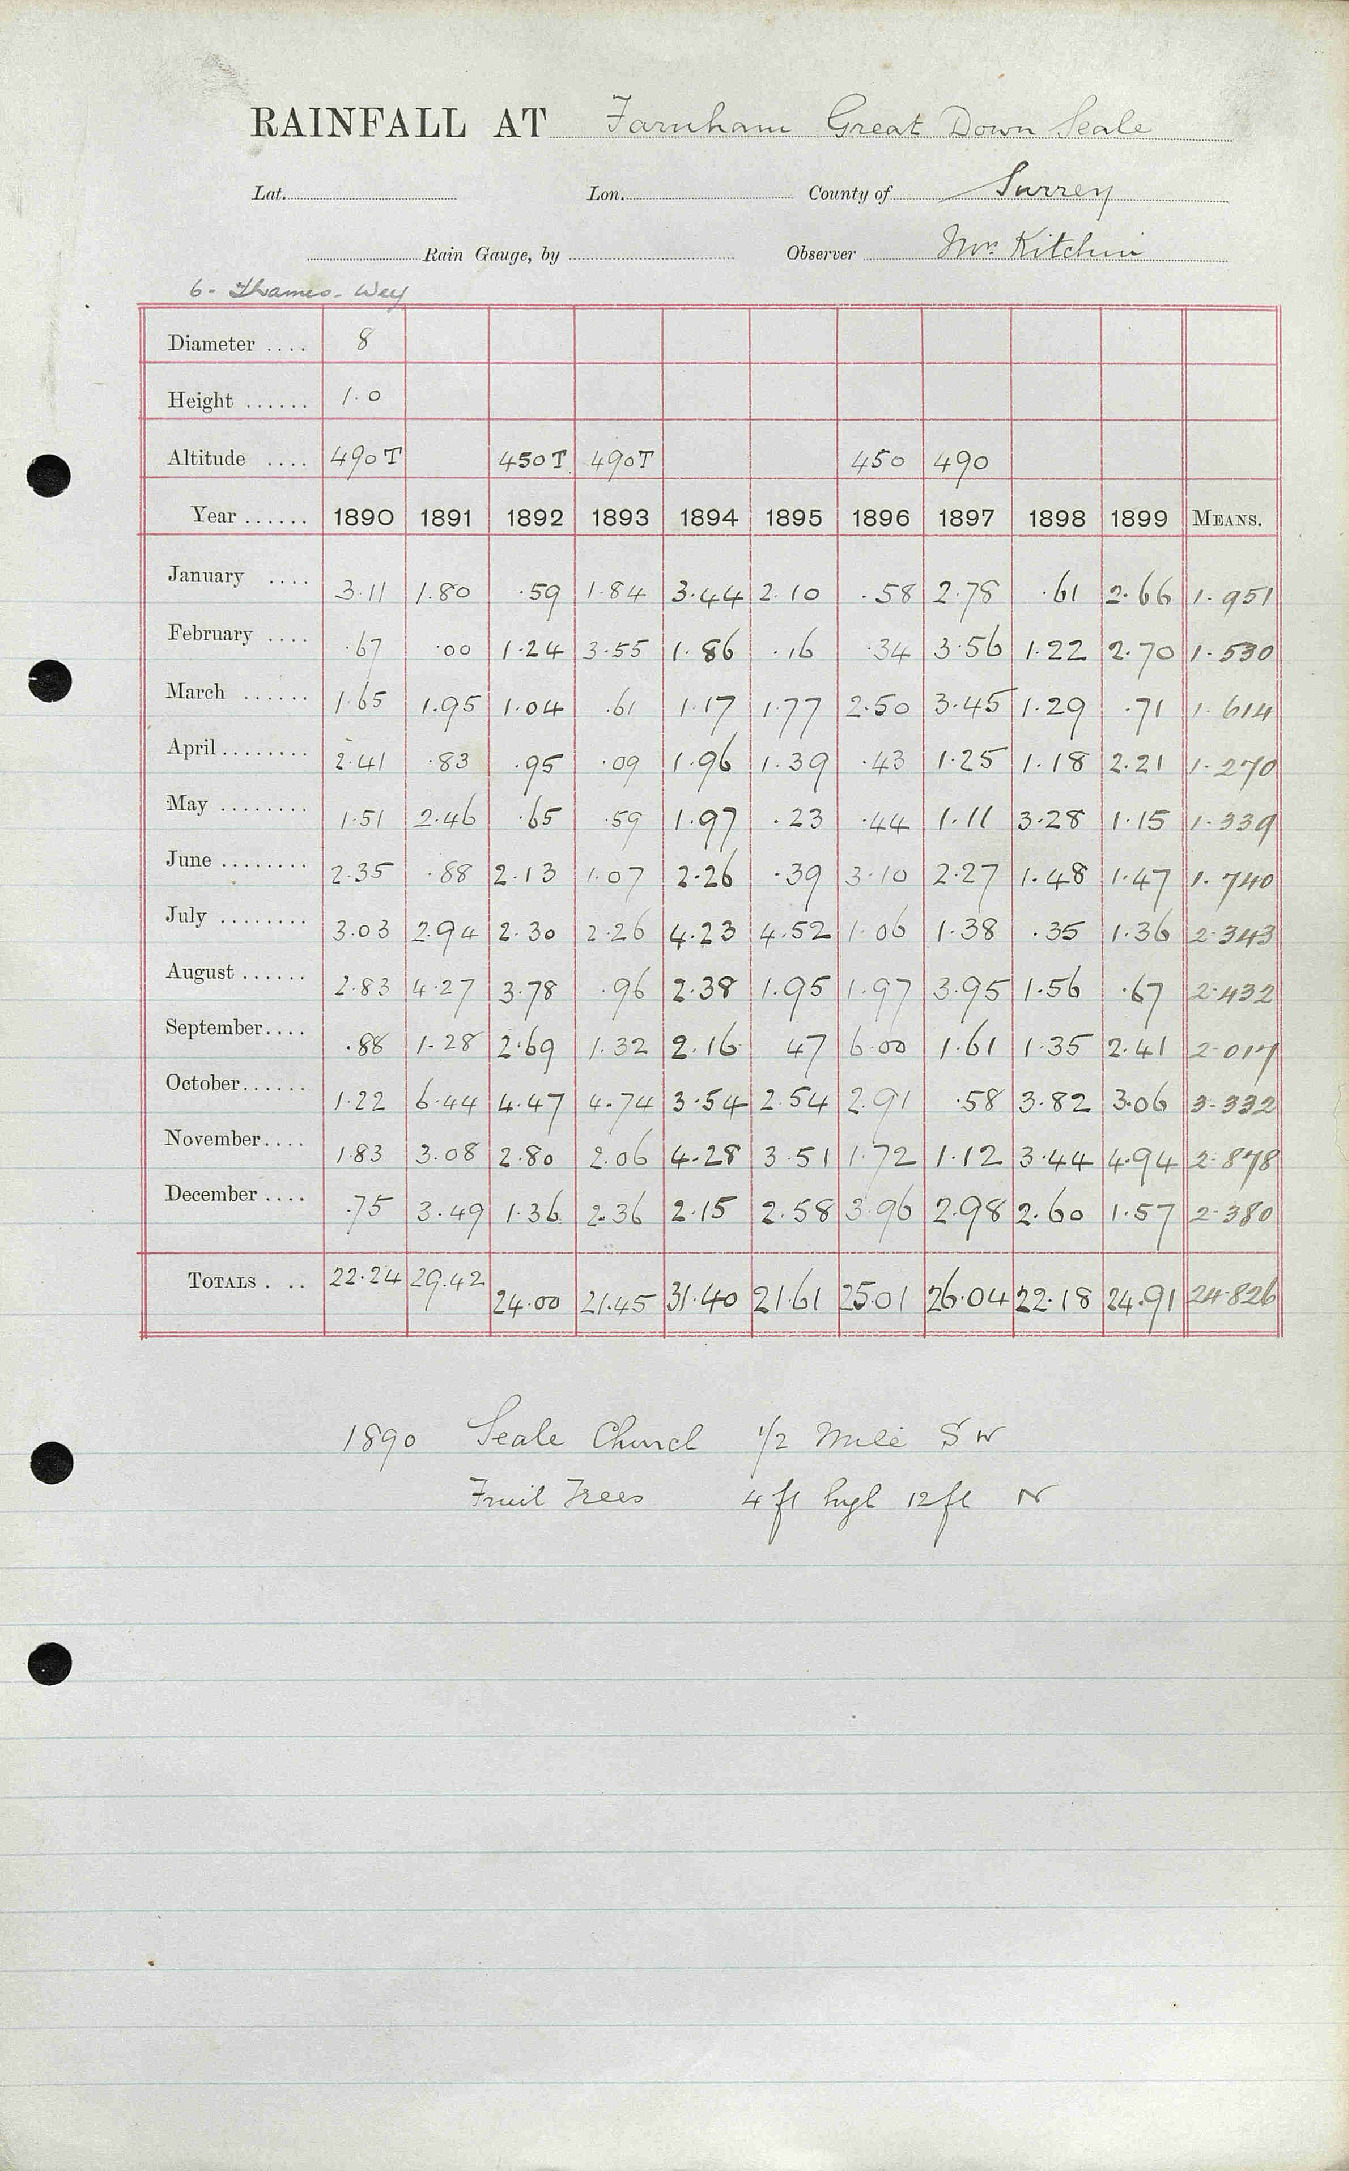 RAINFALL AT Farnham Great Down Seale
Lat. Lon. County of Surrey
Rain Gauge, by Observer Mrs Kitchin
6 - Thames - Wey
Diameter .... 8
Height ...... 1.0
Altitude .... 490T 450T 490T 450 490
Year ...... 1890 1891 1892 1893 1894 1895 1896 1897 1898 1899 MEANS.
January .... 3.11 1.80 .59 1.84 3.44 2.10 .58 2.78 .61 2.66 1.951
February .... .67 .00 1.24 3.55 1.86 .16 .34 3.56 1.22 2.70 1.530
March ...... 1.65 1.95 1.04 .61 1.17 1.77 2.50 3.45 1.29 .71 1.614
April ........ 2.41 .83 .95 .09 1.96 1.39 .43 1.25 1.18 2.21 1.270
May ........ 1.51 2.46 .65 .59 1.97 .23 .44 1.11 3.28 1.15 1.339
June ........ 2.35 .88 2.13 1.07 2.26 .39 3.10 2.27 1.48 1.47 1.740
July ........ 3.03 2.94 2.30 2.26 4.23 4.52 1.06 1.38 .35 1.36 2.343
August ...... 2.83 4.27 3.78 .96 2.38 1.95 1.97 3.95 1.56 .67 2.432
September .... .88 1.28 2.69 1.32 2.16 47 6.00 1.61 1.35 2.41 2.017
October ...... 1.22 6.44 4.47 4.74 3.54 2.54 2.91 .58 3.82 3.06 3.332
November .... 1.83 3.08 2.80 2.06 4.28 3.51 1.72 1.12 3.44 4.94 2.878
December .... .75 3.49 1.36 2.36 2.15 2.58 3.96 2.98 2.60 1.57 2.380
TOTALS . .. 22.24 29.42 24.00 21.45 31.40 21.61 25.01 26.04 22.18 24.91 24.826
1890 Seale Church 1/2 Mile S W
Fruit Trees 4 ft high 12 ft N